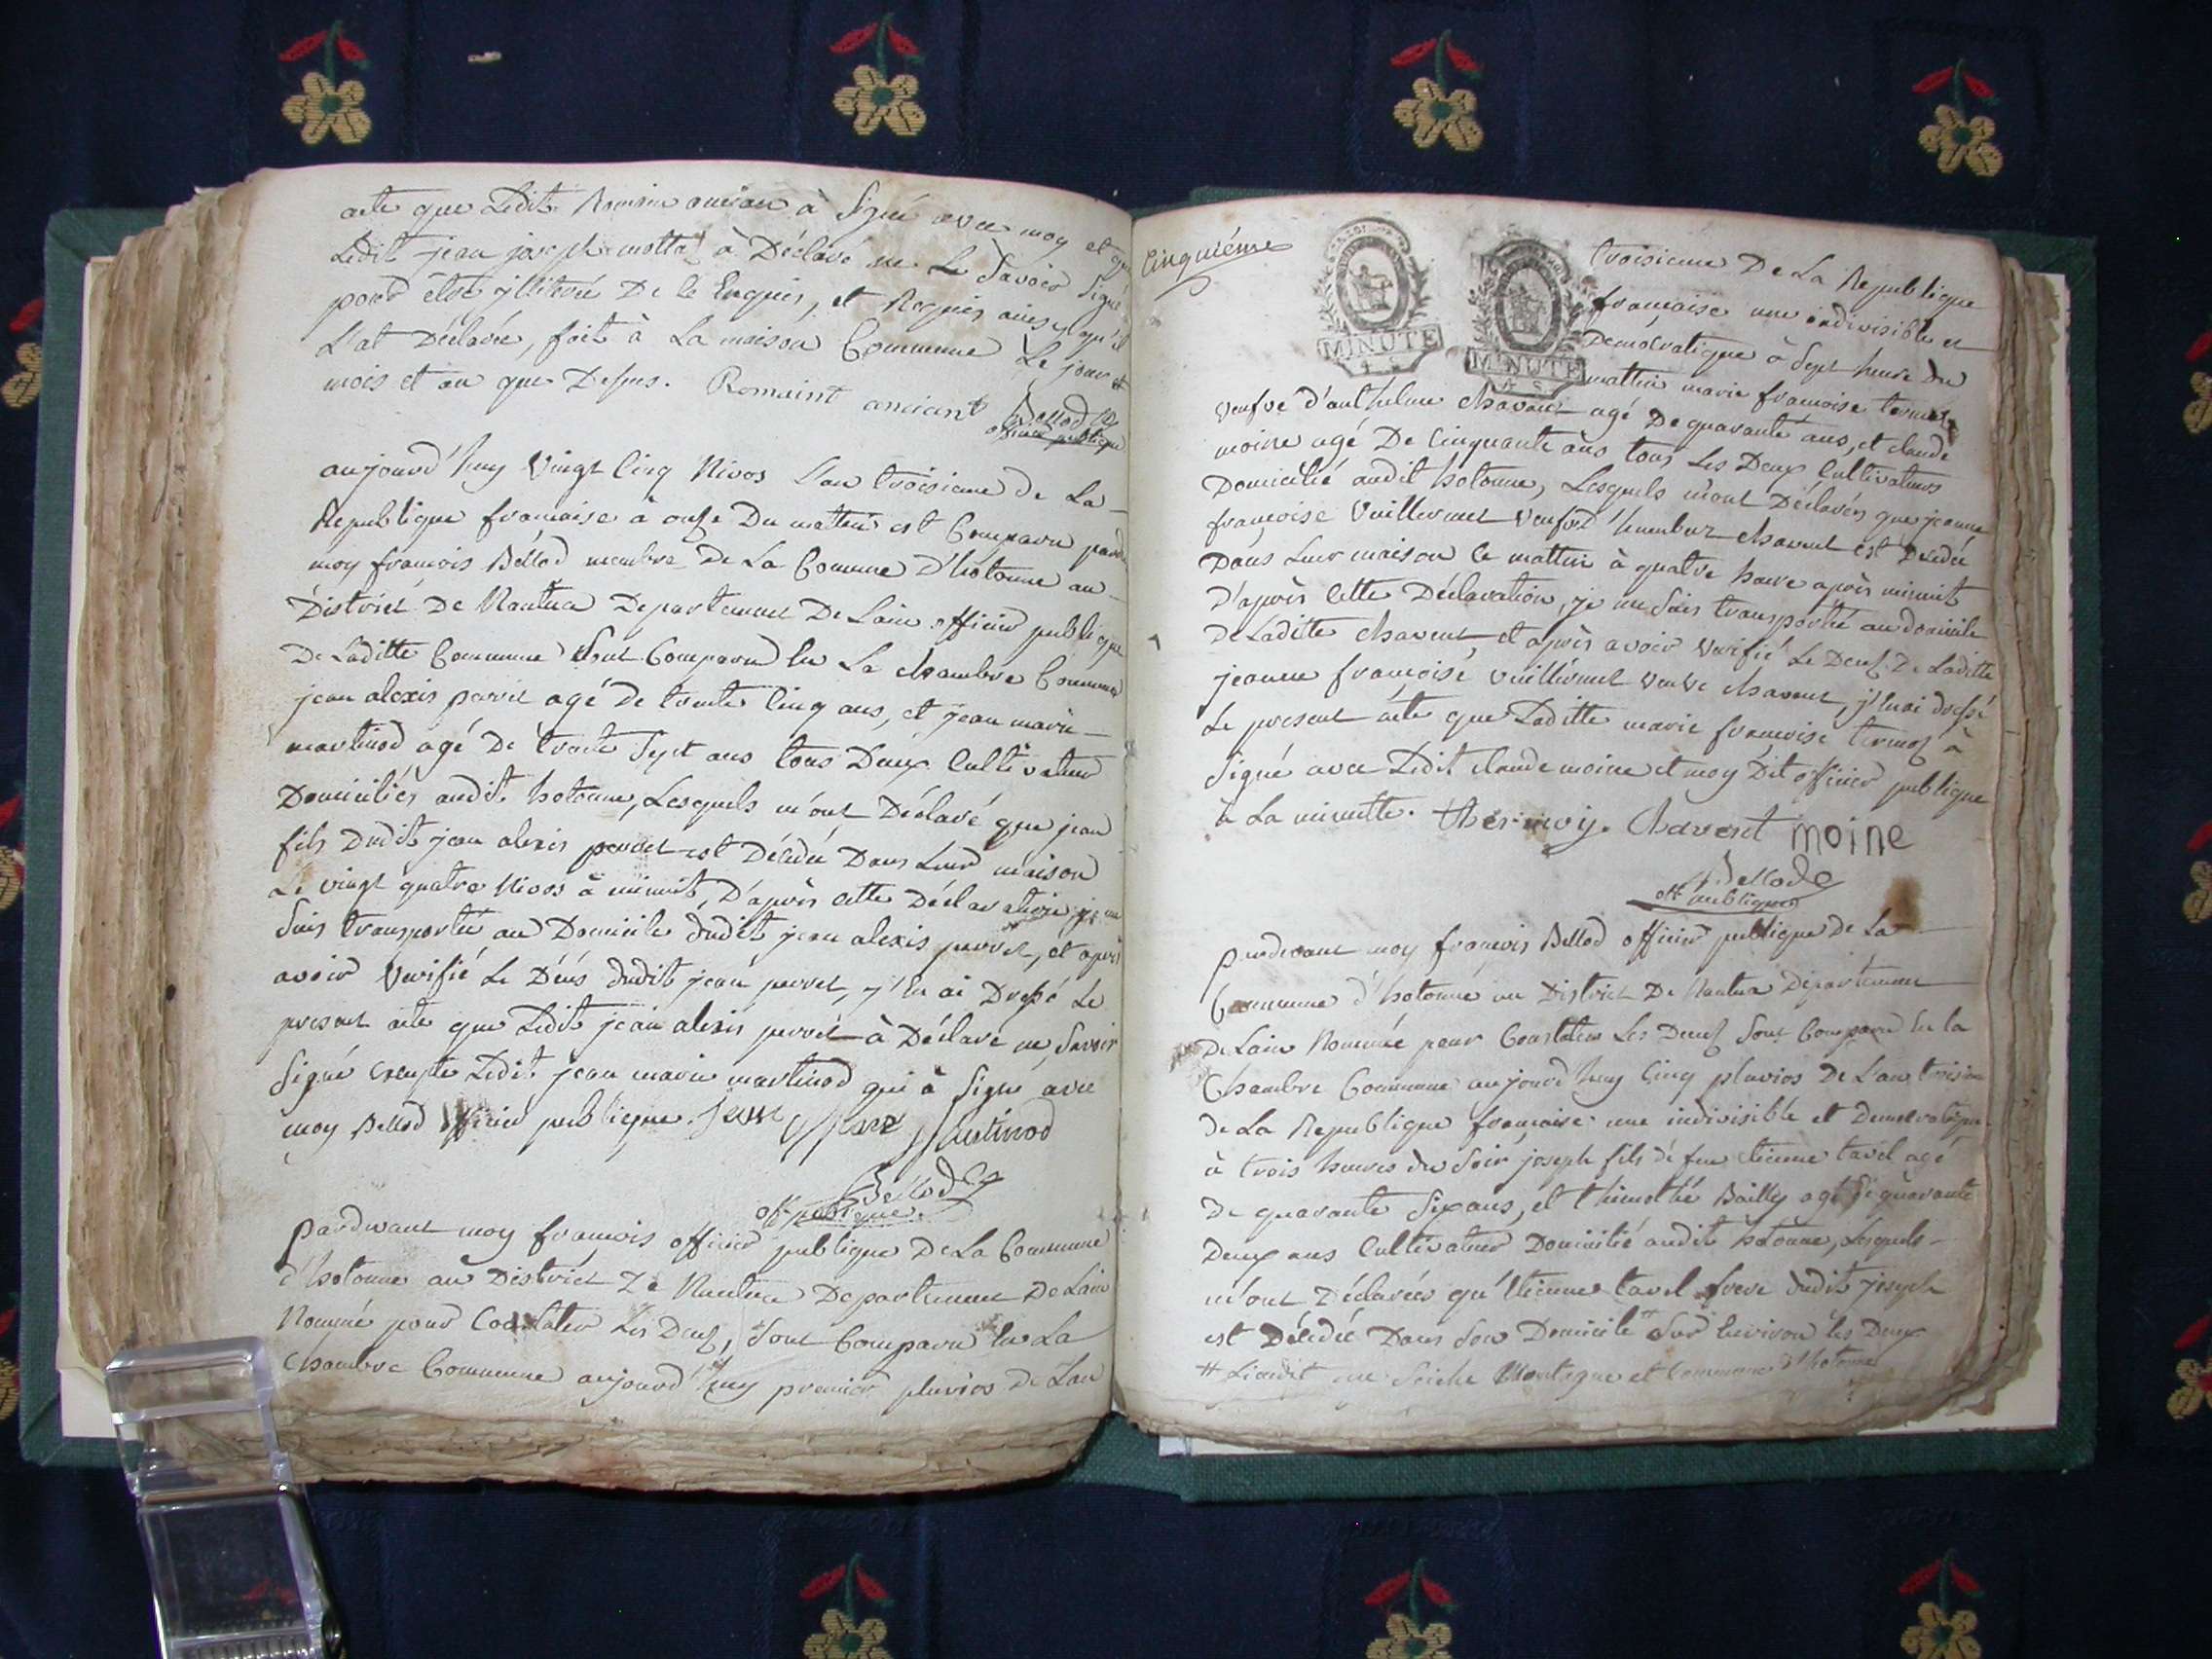 acte que Ledit Romain ancian à Signé avec moy et que
Ledit jean joseph mottaz à Déclaré ne Le Savoir Signé
pour être yllitéré De le Enquis, et Requis ainsy qu'il
L'at Déclarée, fait à La maison Commune Le jour
mois et an que Dessus. Romaint anciant Bellod
officier publique
aujourd'huy Vingt Cinq Nivos L'an troisieme de La
Republique francaise à onze Du mattin est Comparu
moy francois Bellod membre De La Comune D'hotonne au
District De Nantua Departement De Lain officier publique
De Laditte Commune Sont Comparu En La chambre Commune
jean alexis perret agé de trente Cinq ans, et jean marie
martinod agé De trente Sept ans tous Deux Cultivateur
Domiciliés audit hotonne, Lesquels m'ont Déclaré que jean
fils Dudit jean alexis perret est Décédé Dans Leur maison
Le vingt quatre Nivos à minuit, D'après cette Déclaration je me
Suis transporté au Domicile Dudit jean alexis perret, et après
avoir Verifié Le Décés Dudit jean perret, j'En ai Dressé Le
present acte que Ledit jean alexis perret à Déclaré ne Savoir
Signé Exepte Ledit jean marie martinod qui à Signé avec
moy Bellod officier publique. jean Marie Martinod
Bellod
off publique
pardevant moy francois officier publique De La Commune
d'hotonne au District De Nantua Departement De Lain
Nommé pour Constater Les Deces, Sont Comparu En La
Chambre Commune aujourd'huy premier pluvios De L'an
Cinquiéme
MINUTE
MINUTE
troisieme De La Republique
francaise une indivisible et
Democratique à Sept heure du
mattin marie francoise termoz
Veufve d'anthelme chavent agé De quarante ans, et claude
moine agé De Cinquante ans tous Les Deux Cultivateurs
Domicilié audit hotonne, Lesquels m'ont Déclarés que jeanne
françoise Vuillermet Veufve humbert chavent est Décédée
Dans Leur maison Ce mattin à quatre heure après minuit
D'après Cette Déclaration, je me Suis transporté au domicile
De Laditte chavent, et après avoir Verifié Le Deces De Laditte
jeanne françoise Vuillermet Veuve chavent, j'Enai dressé
Le present acte que Laditte marie francoise termoz à
Signé avec Ledit claude moine et moy Dit officier publique
à La minutte. Chavent moine
Bellod
off publique
pardevant moy francois Bellod officier publique De La
Commune d'hotonne au District De Nantua Departement
De Lain Nommé pour Constater Les Deces Sont Comparu En la
Chambre Commune aujourd'huy Cinq pluvios De L'an troisieme
de La Republique francaise une indivisible et Democratique
à trois heures du Soir joseph fils de feu Etienne tavel agé
De quarante Six ans, et thimothé Bailly agé De quarante
Deux ans Cultivateur Domicilié audit hotonne, Lesquels
m'ont Déclarés qu'Etienne tavel frere dudit joseph
est Décédé Dans Son Domicile # Sur Environ les Deux
# Lieudit en Seiche Montagne et Commune d'hotonne